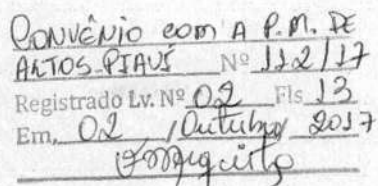 CONVÊNIO COM A P.M. DE
ALTOS-PIAUÍ Nº 112/17
Registrado Lv. Nº 02 Fls 13
Em, 02 / Outubro 2017